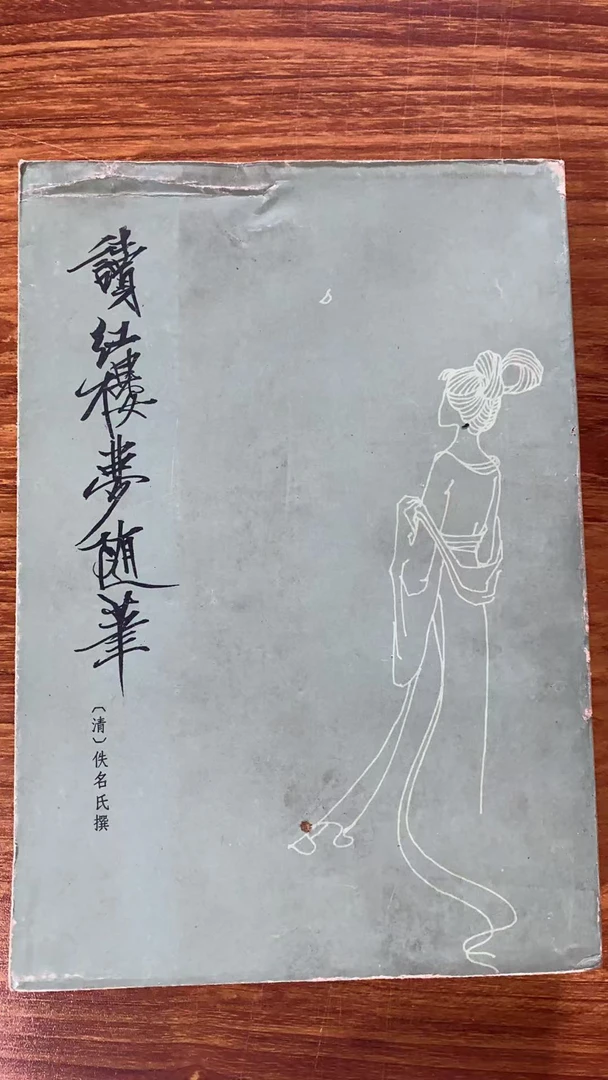 讀紅樓夢随筆
〔清〕佚名氏撰